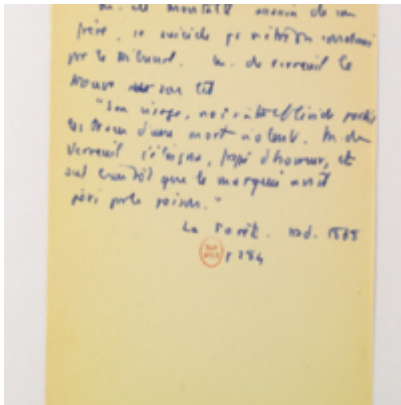 M. de Montalt assassin de son
frère, se suicide pr n'être condamné
par le tribunal. M. de Verneuil le
trouve sur son lit
"Son visage, noirâtre et livide portait
les traces d'une mort violente. M. de
Verneuil s'éloigna, frappé d'horreur, et
sut bientôt que le marquis avait
péri par le poison."
La Forêt. éd. 1868
p 284